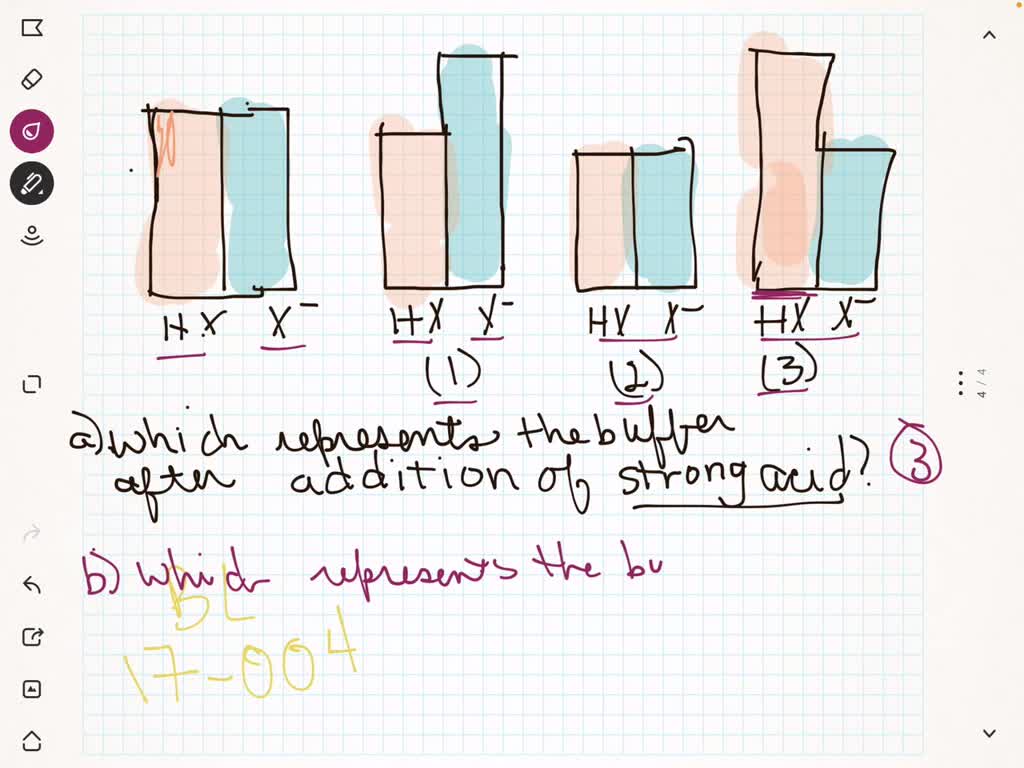 HX X⁻ HX X⁻ HX X⁻ HX X⁻
(1) (2) (3)
a) which represents the buffer
after addition of strong acid? 3
b) which represents the bu
BL
17-004
4 / 4